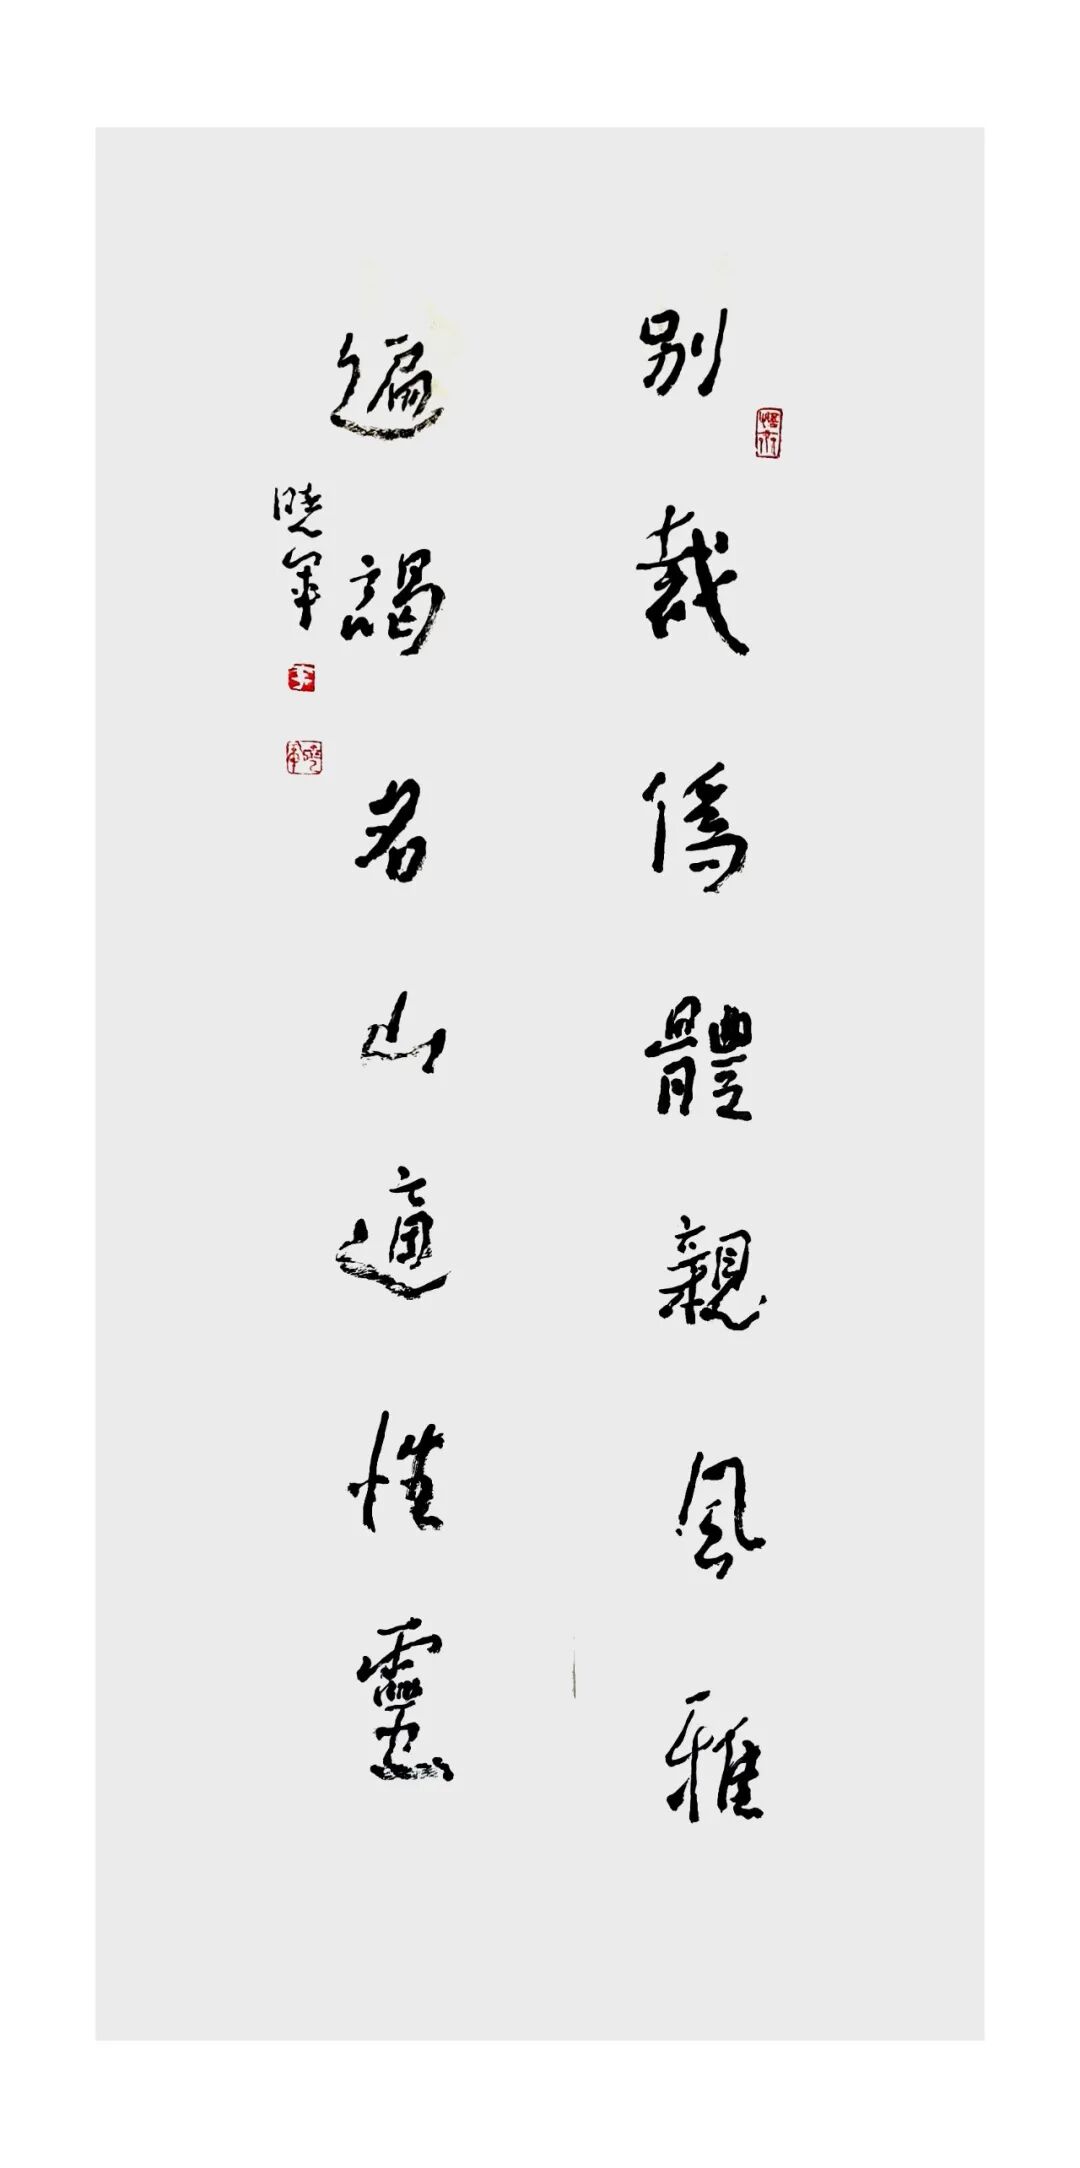 別裁偽體親風雅
遍謁名山適性靈
曉軍